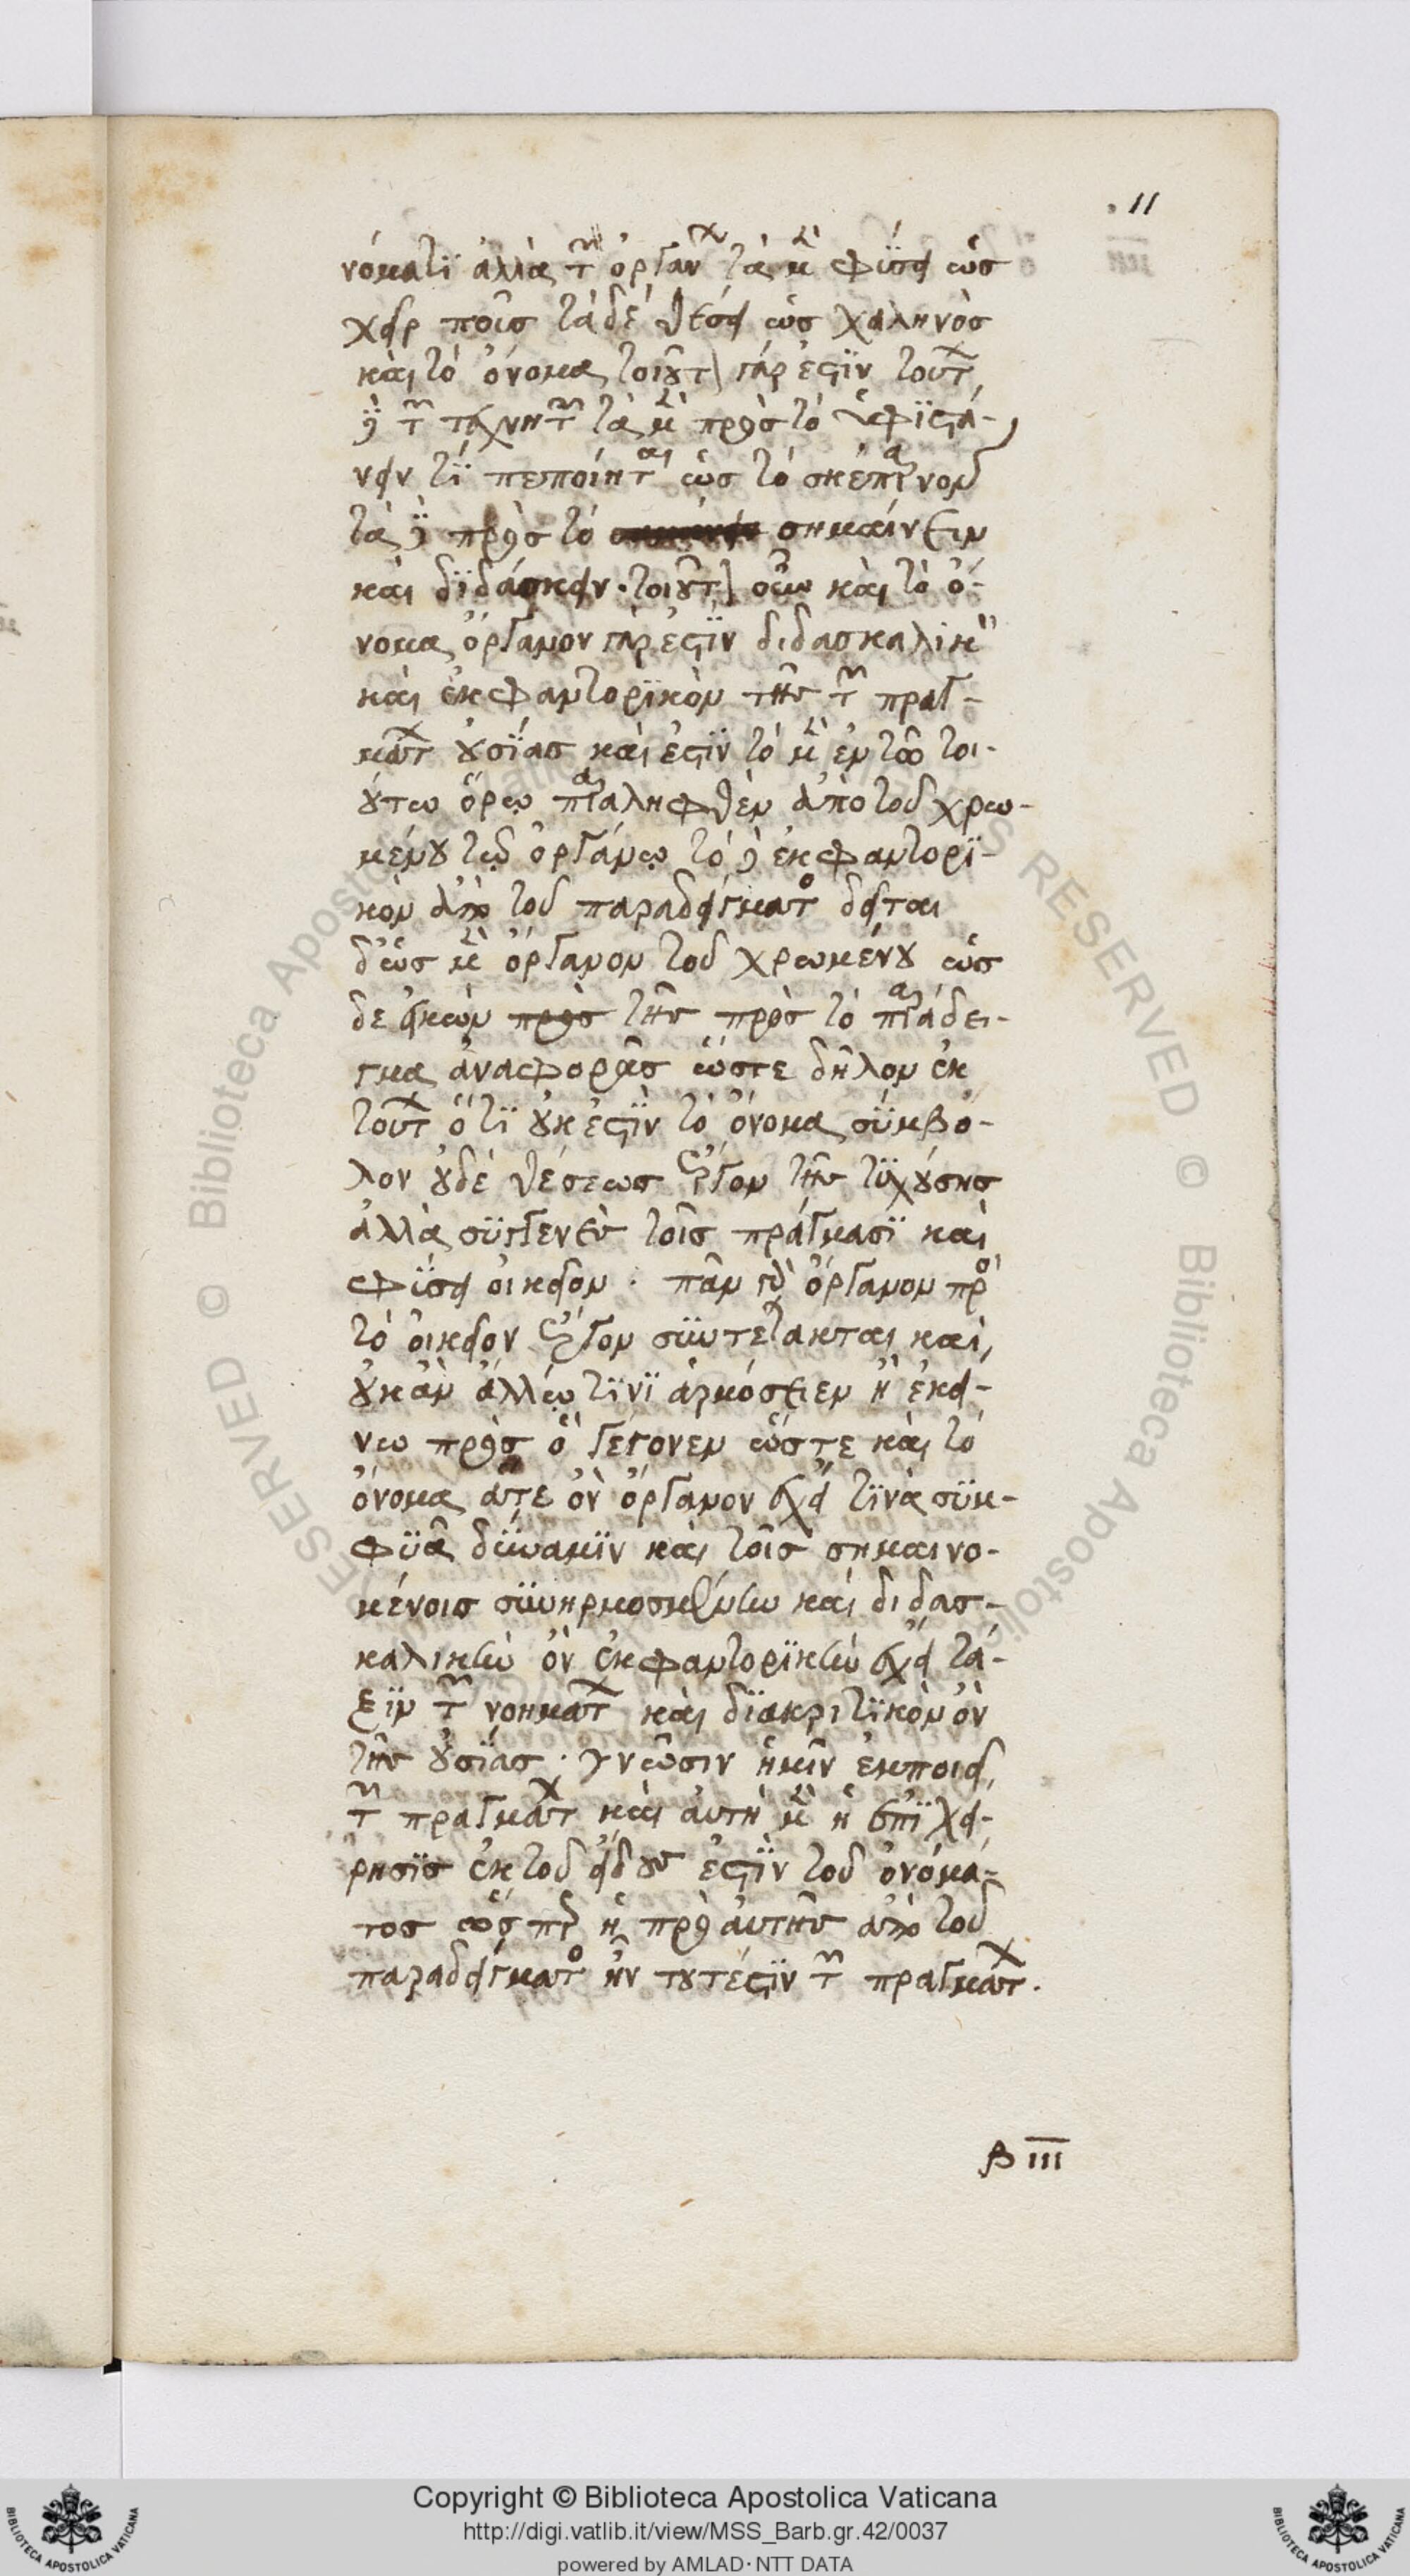 11
νόματι ἀλλὰ τῶν ὀργάνων τὰ μὲν φύσει ὡς
χεὶρ ποῦς τὰ δὲ θέσει ὡς χαληνὸς
καὶ τὸ ὄνομα τοιοῦτον γάρ ἐστιν τούτων
δὲ τῶν τεχνητῶν τὰ μὲν πρὸς τὸ ὑφιστά-
νειν τι πεποίηται ὡς τὸ σκέπαρνον
τὰ δὲ πρὸς τὸ σημαίνειν
καὶ διδάσκειν. τοιοῦτον οὖν καὶ τὸ ὄ-
νομα ὄργανον γάρ ἐστιν διδασκαλικὸν
καὶ ἐκφαντορικὸν τῆς τῶν πραγ-
μάτων οὐσίας καὶ ἔστιν τὸ μὲν ἐν τῶ τοι-
ούτω ὅρῳ παραληφθὲν ἀπὸ τοῦ χρω-
μένου τῷ ὀργάνῳ τὸ δὲ ἐκφαντορι-
κὸν ἀπὸ τοῦ παραδείγματος δεῖται
δ' ὡς μὲν ὄργανον τοῦ χρωμένου ὡς
δὲ εἰκὼν πρὸς τῆς πρὸς τὸ παράδει-
γμα ἀναφορᾶς ὥστε δῆλον ἐκ
τούτων ὅτι οὐκ ἔστιν τὸ ὄνομα σύμβο-
λον οὐδὲ θέσεως ἔργον τῆς τυχούσης
ἀλλὰ συγγενὲς τοῖς πράγμασι καὶ
φύσει οἰκεῖον. πᾶν γὰρ ὄργανον πρὸς
τὸ οἰκεῖον ἔργον συντέτακται καὶ
οὐκ ἂν ἄλλῳ τινὶ ἁρμόσειεν ἢ ἐκεί-
νω πρὸς ὃ γέγονεν ὥστε καὶ τὸ
ὄνομα ἅτε ὂν ὄργανον ἔχει τινὰ συμ-
φυᾶ δύναμιν καὶ τοῖς σημαινο-
μένοις συνηρμοσμένην καὶ διδασ-
καλικὴν ὂν ἐκφαντορικὴν ἔχει τά-
ξιν τῶν νοημάτων καὶ διακριτικὸν ὂν
τῆς οὐσίας. γνῶσιν ἡμῖν ἐμποιεῖ
τῶν πραγμάτων καὶ αὐτὴ μὲν ἡ ἐπιχεί-
ρησις ἐκ τοῦ εἴδους ἐστὶν τοῦ ὀνόμα-
τος ὥσπερ ἡ πρὸ αὐτῆς ἀπὸ τοῦ
παραδείγματος ἦν τουτέστιν τῶν πραγμάτων.
β III
Copyright © Biblioteca Apostolica Vaticana
http://digi.vatlib.it/view/MSS_Barb.gr.42/0037
powered by AMLAD·NTT DATA